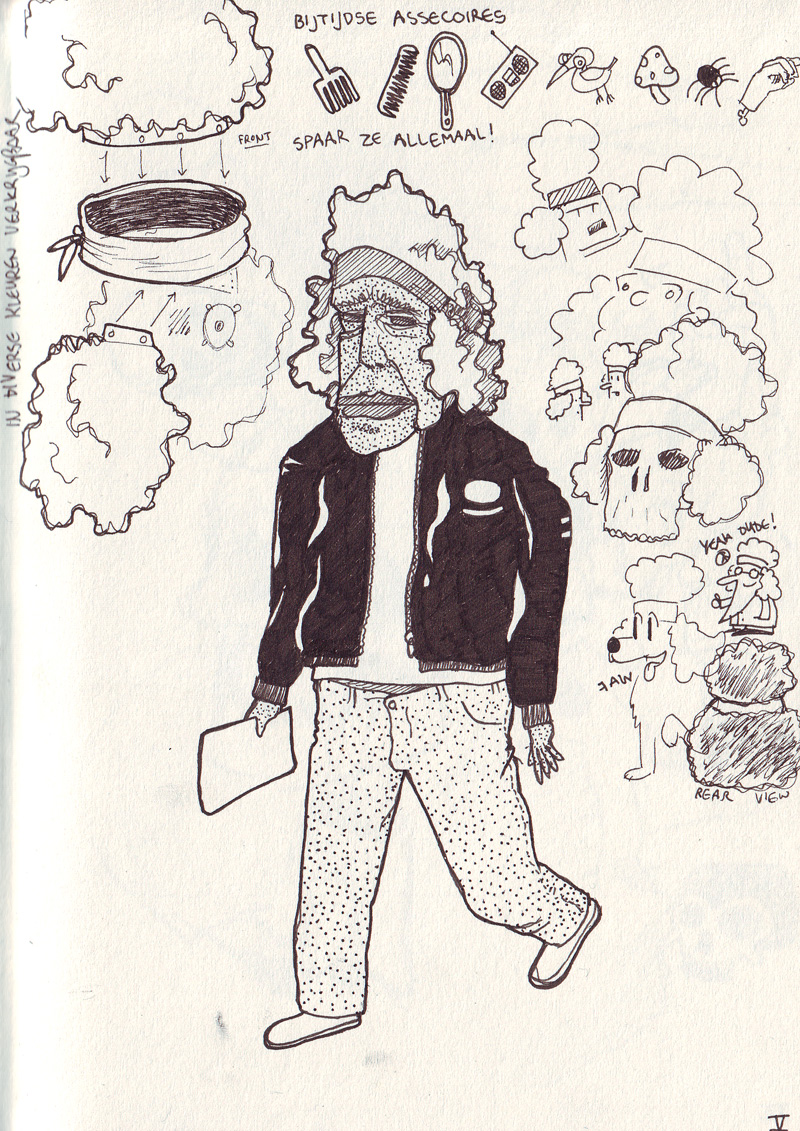 BIJTIJDSE ASSECOIRES
SPAAR ZE ALLEMAAL!
FRONT
IN DIVERSE KLEUREN VERKRIJGBAAR
YEAH DUDE!
REAR VIEW
V